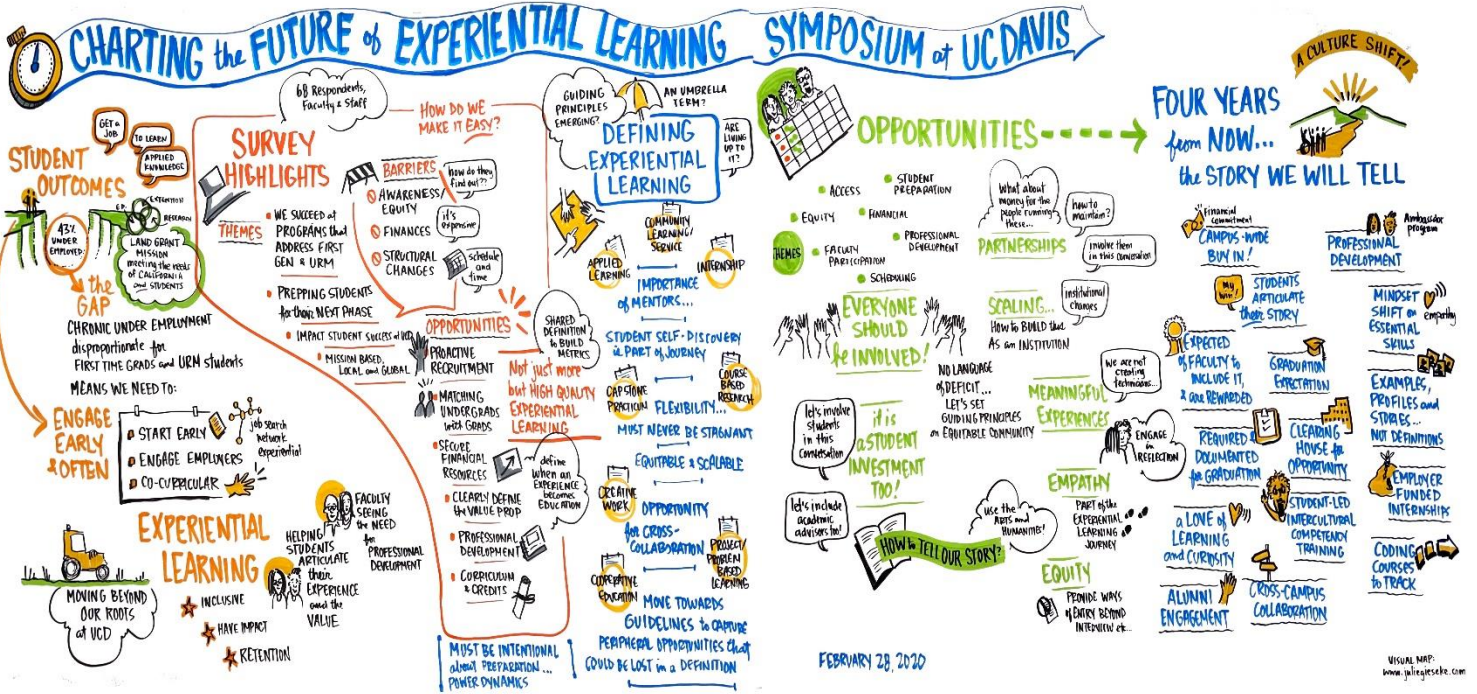 CHARTING the FUTURE of EXPERIENTIAL LEARNING SYMPOSIUM at UC DAVIS
GET a
JOB
TO LEARN
APPLIED
KNOWLEDGE
STUDENT
OUTCOMES
EXTENTION
RESEARCH
43%
UNDER
EMPLOYED
LAND GRANT
MISSION
meeting the needs
of CALIFORNIA
and STUDENTS
the
GAP
CHRONIC UNDER EMPLOYMENT
disproportionate for
FIRST TIME GRADS and URM students
MEANS WE NEED TO:
ENGAGE
EARLY
& OFTEN
START EARLY
ENGAGE EMPLOYERS
CO-CURRICULAR
job search
network
experiential
EXPERIENTIAL
LEARNING
INCLUSIVE
HAVE IMPACT
RETENTION
HELPING
STUDENTS
ARTICULATE
their
EXPERIENCE
and the
VALUE
FACULTY
SEEING
the NEED
for
PROFESSIONAL
DEVELOPMENT
MOVING BEYOND
OUR ROOTS
at UCD
68 Respondents,
Faculty & Staff
HOW DO WE
MAKE IT EASY?
SURVEY
HIGHLIGHTS
THEMES
WE SUCCEED at
PROGRAMS that
ADDRESS FIRST
GEN & URM
PREPPING STUDENTS
for their NEXT PHASE
IMPACT STUDENT SUCCESS at UCD
MISSION BASED,
LOCAL and GLOBAL
BARRIERS
AWARENESS/
EQUITY
FINANCES
STRUCTURAL
CHANGES
how do they
find out??
it's
expensive
schedule
and
time
OPPORTUNITIES
PROACTIVE
RECRUITMENT
MATCHING
UNDERGRADS
with GRADS
SECURE
FINANCIAL
RESOURCES
CLEARLY DEFINE
the VALUE PROP
PROFESSIONAL
DEVELOPMENT
CURRICULUM
& CREDITS
SHARED
DEFINITION
to BUILD
METRICS
Not just more
but HIGH QUALITY
EXPERIENTIAL
LEARNING
define
when an
EXPERIENCE
becomes
EDUCATION
MUST BE INTENTIONAL
about PREPARATION...
POWER DYNAMICS
GUIDING
PRINCIPLES
EMERGING?
AN UMBRELLA
TERM?
DEFINING
EXPERIENTIAL
LEARNING
ARE
LIVING
UP TO
IT?
COMMUNITY
LEARNING/
SERVICE
APPLIED
LEARNING
INTERNSHIP
IMPORTANCE
of MENTORS...
STUDENT SELF-DISCOVERY
is PART of JOURNEY
CAPSTONE
PRACTICUM
COURSE
BASED
RESEARCH
FLEXIBILITY...
MUST NEVER BE STAGNANT
EQUITABLE & SCALABLE
CREATIVE
WORK
OPPORTUNITY
for CROSS-
COLLABORATION
PROJECT/
PROBLEM
BASED
LEARNING
COOPERATIVE
EDUCATION
MOVE TOWARDS
GUIDELINES to CAPTURE
PERIPHERAL OPPORTUNITIES that
COULD BE LOST in a DEFINITION
OPPORTUNITIES
THEMES
ACCESS
STUDENT
PREPARATION
EQUITY
FINANCIAL
PROFESSIONAL
DEVELOPMENT
FACULTY
PARTICIPATION
SCHEDULING
EVERYONE
SHOULD
be INVOLVED!
let's involve
students
in this
conversation
it is
a STUDENT
INVESTMENT
TOO!
let's include
academic
advisors too!
HOW to TELL OUR STORY?
use the
ARTS and
HUMANITIES!
NO LANGUAGE
of DEFICIT...
LET'S SET
GUIDING PRINCIPLES
on EQUITABLE COMMUNITY
What about
money for the
people running
these...
how to
maintain?
PARTNERSHIPS
involve them
in this conversation
SCALING...
HOW to BUILD this
AS an INSTITUTION
institutional
changes
MEANINGFUL
EXPERIENCES
We are not
creating
technicians...
ENGAGE
in
REFLECTION
EMPATHY
PART of the
EXPERIENTIAL
LEARNING
JOURNEY
EQUITY
PROVIDE WAYS
of ENTRY BEYOND
INTERVIEW etc...
FEBRUARY 28, 2020
A CULTURE SHIFT!
FOUR YEARS
from NOW...
the STORY WE WILL TELL
Financial
commitment
CAMPUS-WIDE
BUY IN!
Ambassador
program
PROFESSIONAL
DEVELOPMENT
my
win!
STUDENTS
ARTICULATE
their STORY
MINDSET
SHIFT on
ESSENTIAL
SKILLS
empathy
EXPECTED
of FACULTY to
INCLUDE IT,
& are REWARDED
GRADUATION
EXPECTATION
EXAMPLES,
PROFILES and
STORIES...
NOT DEFINITIONS
REQUIRED &
DOCUMENTED
for GRADUATION
CLEARING
HOUSE for
OPPORTUNITY
EMPLOYER
FUNDED
INTERNSHIPS
a LOVE of
LEARNING
and CURIOSITY
STUDENT-LED
INTERCULTURAL
COMPETENCY
TRAINING
CODING
COURSES
to TRACK
ALUMNI
ENGAGEMENT
CROSS-CAMPUS
COLLABORATION
VISUAL MAP:
www.juliegieseke.com